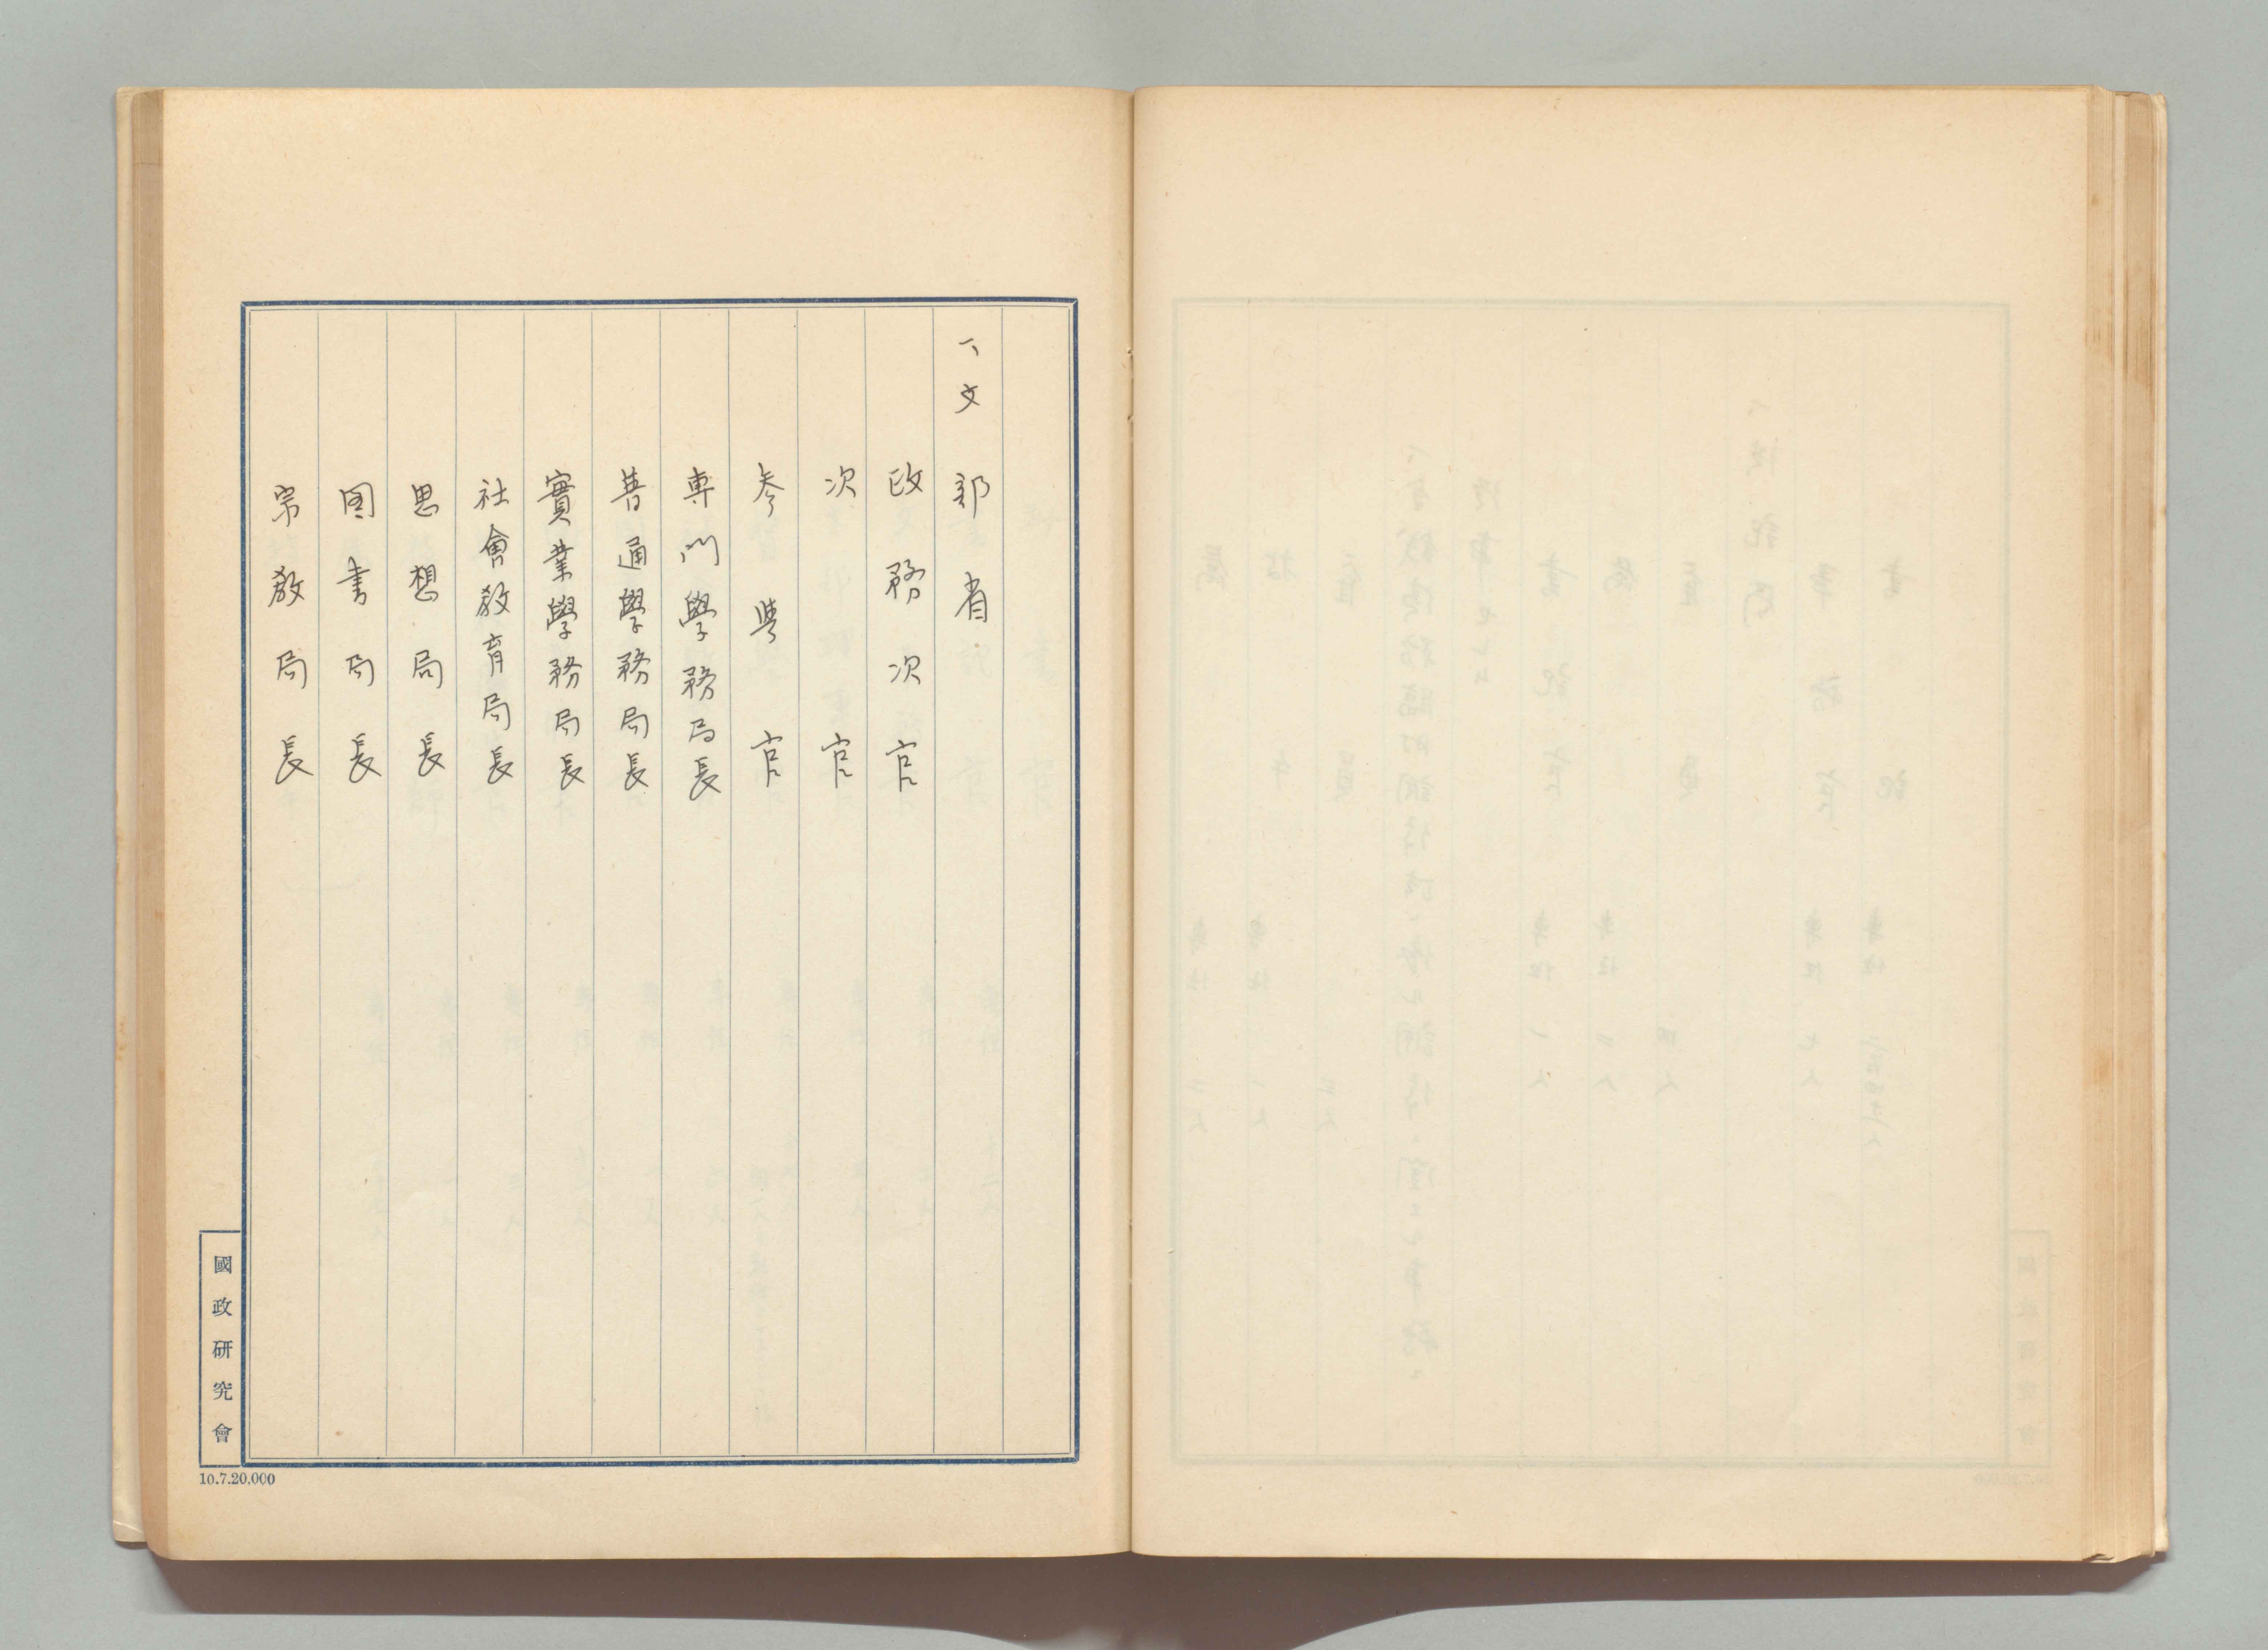 一、文部省
政務次官
次官
参與官
専門學務局長
普通學務局長
實業學務局長
社會教育局長
思想局長
図書局長
宗教局長
國政研究會
10.7.20.000